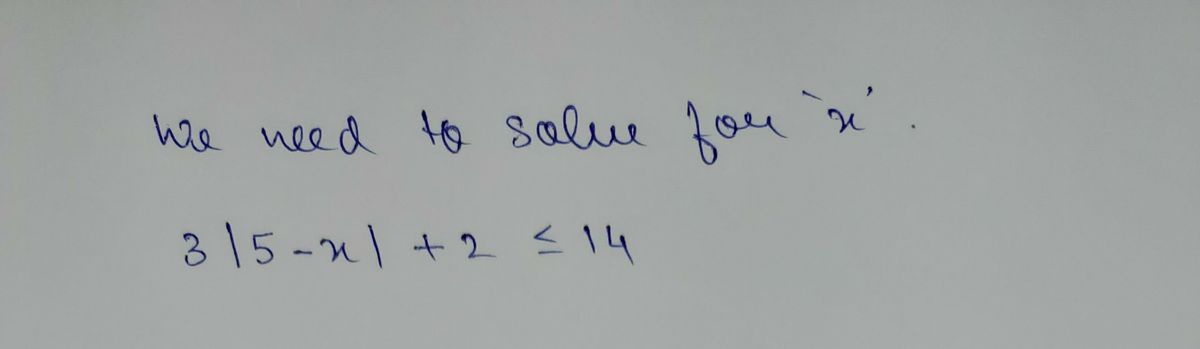 We need to solve for `x'.
3|5-x| + 2 ≤ 14